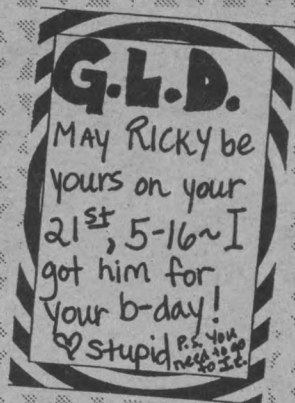 G.L.D.
MAY RICKY be
yours on your
21st, 5-16~ I
got him for
your b-day!
♡ stupid P.S. You
need to go
to I.C.